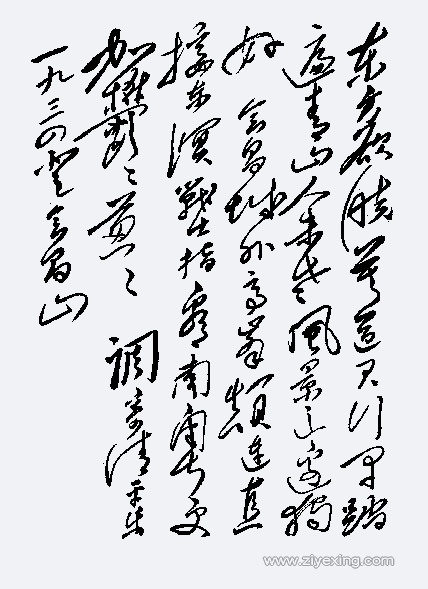 东方欲晓莫道君行早踏
遍青山人未老風景这边独
好会昌城外高峰颠连直
接东溟戰士指看南粤更
加鬱々葱々調寄清平乐
一九三四登会昌山
www.ziyexing.com